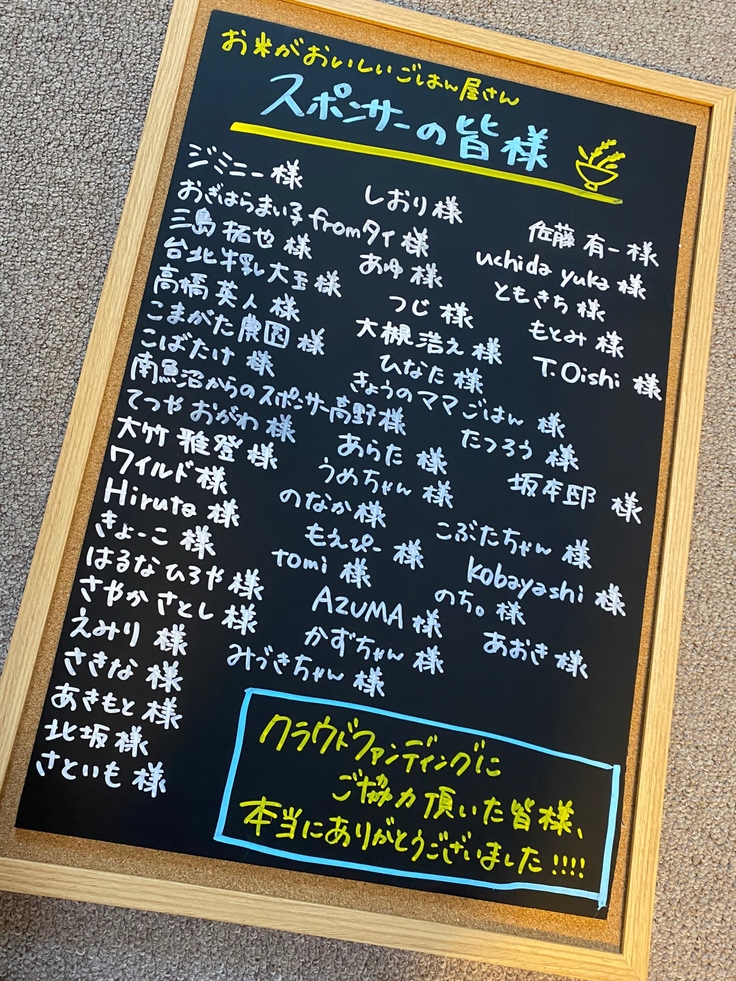 お米がおいしいごはん屋さん
スポンサーの皆様
ジミニー様
おぎはらまい子fromタイ様
三島拓也様
台北牛乳大王様
高橋英人様
こまがた農園様
こばたけ様
南魚沼からのスポンサー高野様
てつやおがわ様
大竹雅登様
ワイルド様
Hiruta様
きょーこ様
はるなひろや様
さやかさとし様
えみり様
さきな様
あきもと様
北坂様
さといも様
しおり様
あゆ様
つじ様
大槻浩え様
ひなた様
きょうのママごはん様
たつろう様
あらた様
うめちゃん様
のなか様
もえぴー様
tomi様
AZUMA様
かずちゃん様
みづきちゃん様
佐藤有一様
uchida yuka様
ともきち様
もとみ様
T.Oishi様
坂本邸様
こぶたちゃん様
kobayashi様
のち。様
あおき様
クラウドファンディングに
ご協力頂いた皆様、
本当にありがとうございました!!!!